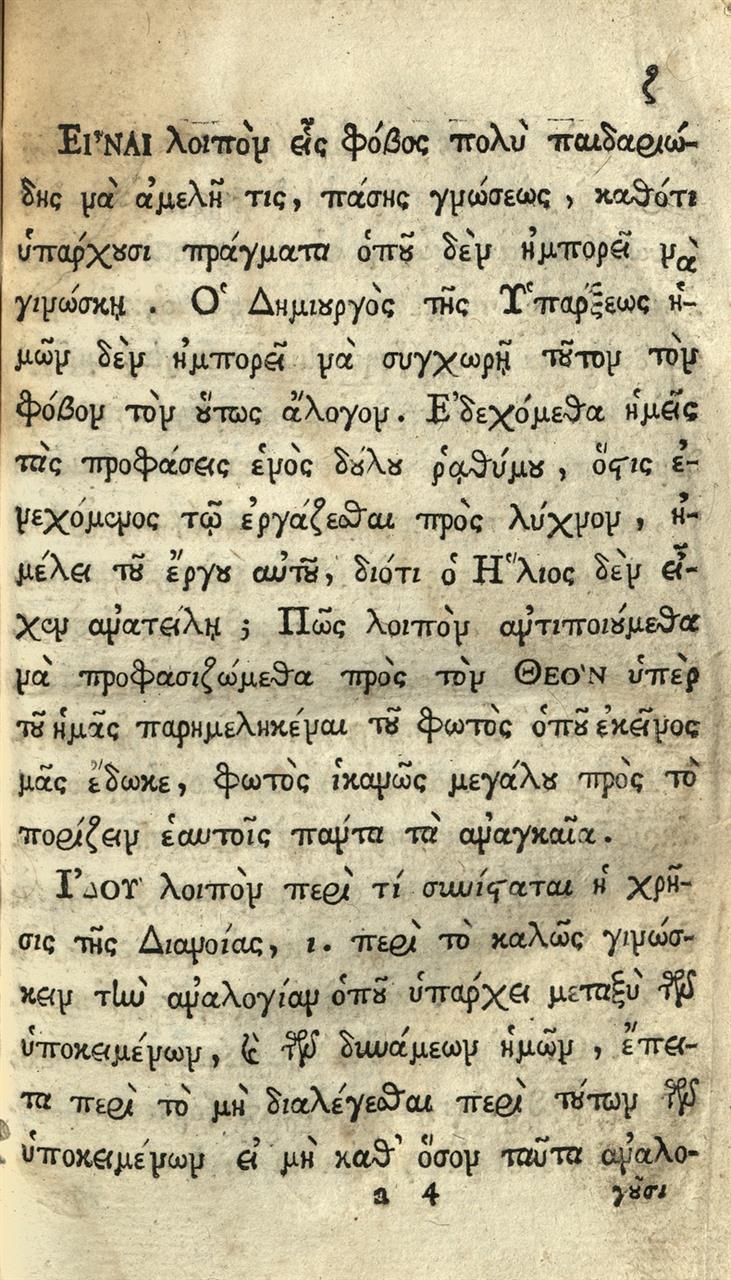 ζ
ΕΙ῏ΝΑΙ λοιπὸν εἷς φόβος πολὺ παιδαριώ-
δης νὰ ἀμελῇ τις, πάσης γνώσεως, καθότι
ὑπάρχȣσι πράγματα ὁπȣ͂ δὲν ἠμπορεῖ νὰ
γινώσκῃ. Ὁ Δημιȣργὸς τῆς Ὑπάρξεως ἡ-
μῶν δὲν ἠμπορεῖ νὰ συγχωρῇ τȣ͂τον τὸν
φόβον τὸν ȣ̔́τως ἄλογον. Ἐδεχόμεθα ἡμεῖς
τὰς προφάσεις ἑνὸς δȣ́λȣ ῥᾳθύμȣ, ὅϛις ἐ-
νεχόμενος τῷ ἐργάζεσθαι πρὸς λύχνον, ἠ-
μέλει τȣ͂ ἔργȣ αὑτȣ͂, διότι ὁ Ἥλιος δὲν εἶ-
χεν ἀνατείλῃ; Πῶς λοιπὸν ἀντιποιȣ́μεθα
νὰ προφασιζώμεθα πρὸς τὸν ΘΕΟ᾿Ν ὑπὲρ
τȣ͂ ἡμᾶς παρημεληκέναι τȣ͂ φωτὸς ὁπȣ͂ ἐκεῖνος
μᾶς ἔδωκε, φωτὸς ἱκανῶς μεγάλȣ πρὸς τὸ
πορίζειν ἑαυτοῖς πάντα τὰ ἀναγκαῖα.
Ι᾿ΔΟΥ λοιπὸν περὶ τί συνίϛαται ἡ χρῆ-
σις τῆς Διανοίας, 1. περὶ τὸ καλῶς γινώσ-
κειν τὴν ἀναλογίαν ὁπȣ͂ ὑπάρχει μεταξὺ τῶν
ὑποκειμένων, ϗ τῶν δυνάμεων ἡμῶν, ἔπει-
τα περὶ τὸ μὴ διαλέγεσθαι περὶ τȣ́των τῶν
ὑποκειμένων εἰ μὴ καθ' ὅσον ταῦτα ἀναλο-
a 4 γȣ͂σι